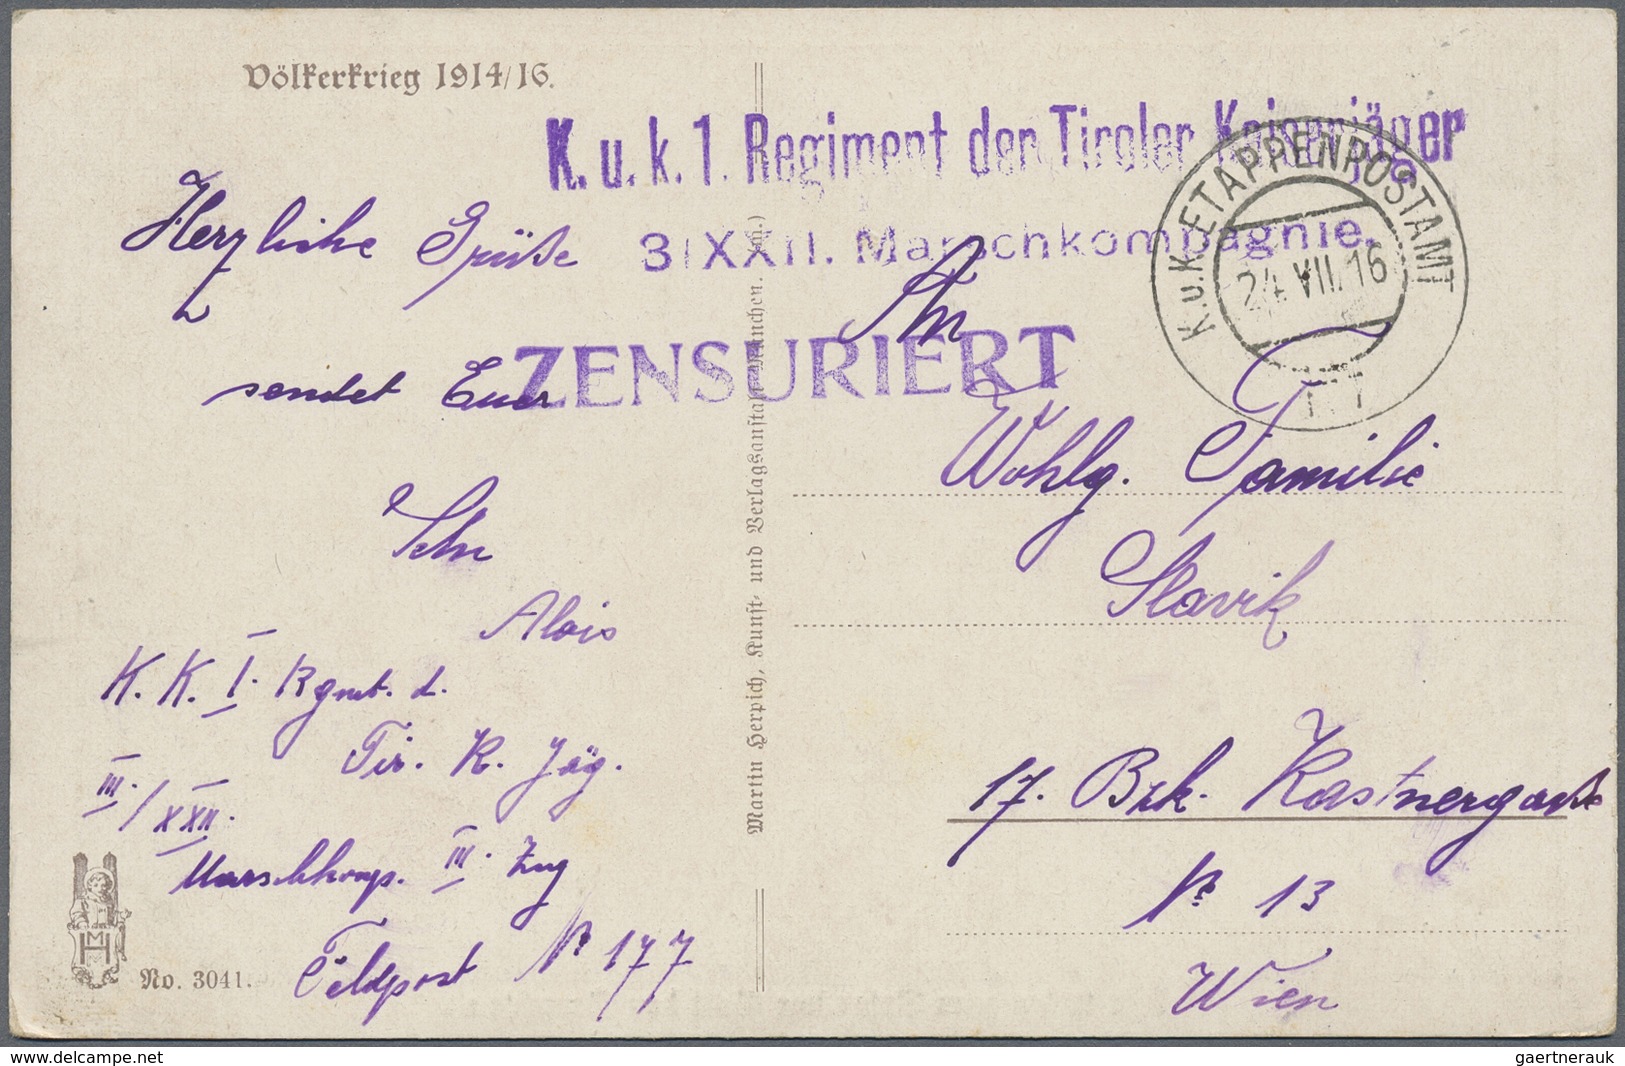 Völkerkrieg 1914/16.
K. u. k. 1. Regiment der Tiroler Kaiserjäger
3/XXII. Marschkompagnie.
ZENSURIERT
K.u.K. ETAPPENPOSTAMT
24 VII. 16
Herzliche Grüße
sendet Euer
Sohn
Alois
K. K. I. Rgmt. d.
Tir. K. Jäg.
III./XXII.
Marschkomp. III. Zug
Feldpost No 177
No. 3041.
MH
Martin Herpich, Kunst- und Verlagsanstalt München.
An
Wohlg. Familie
Slavik
17. Bzk. Kastnergasse
No 13
Wien
www.delcampe.net
gaertnerauk